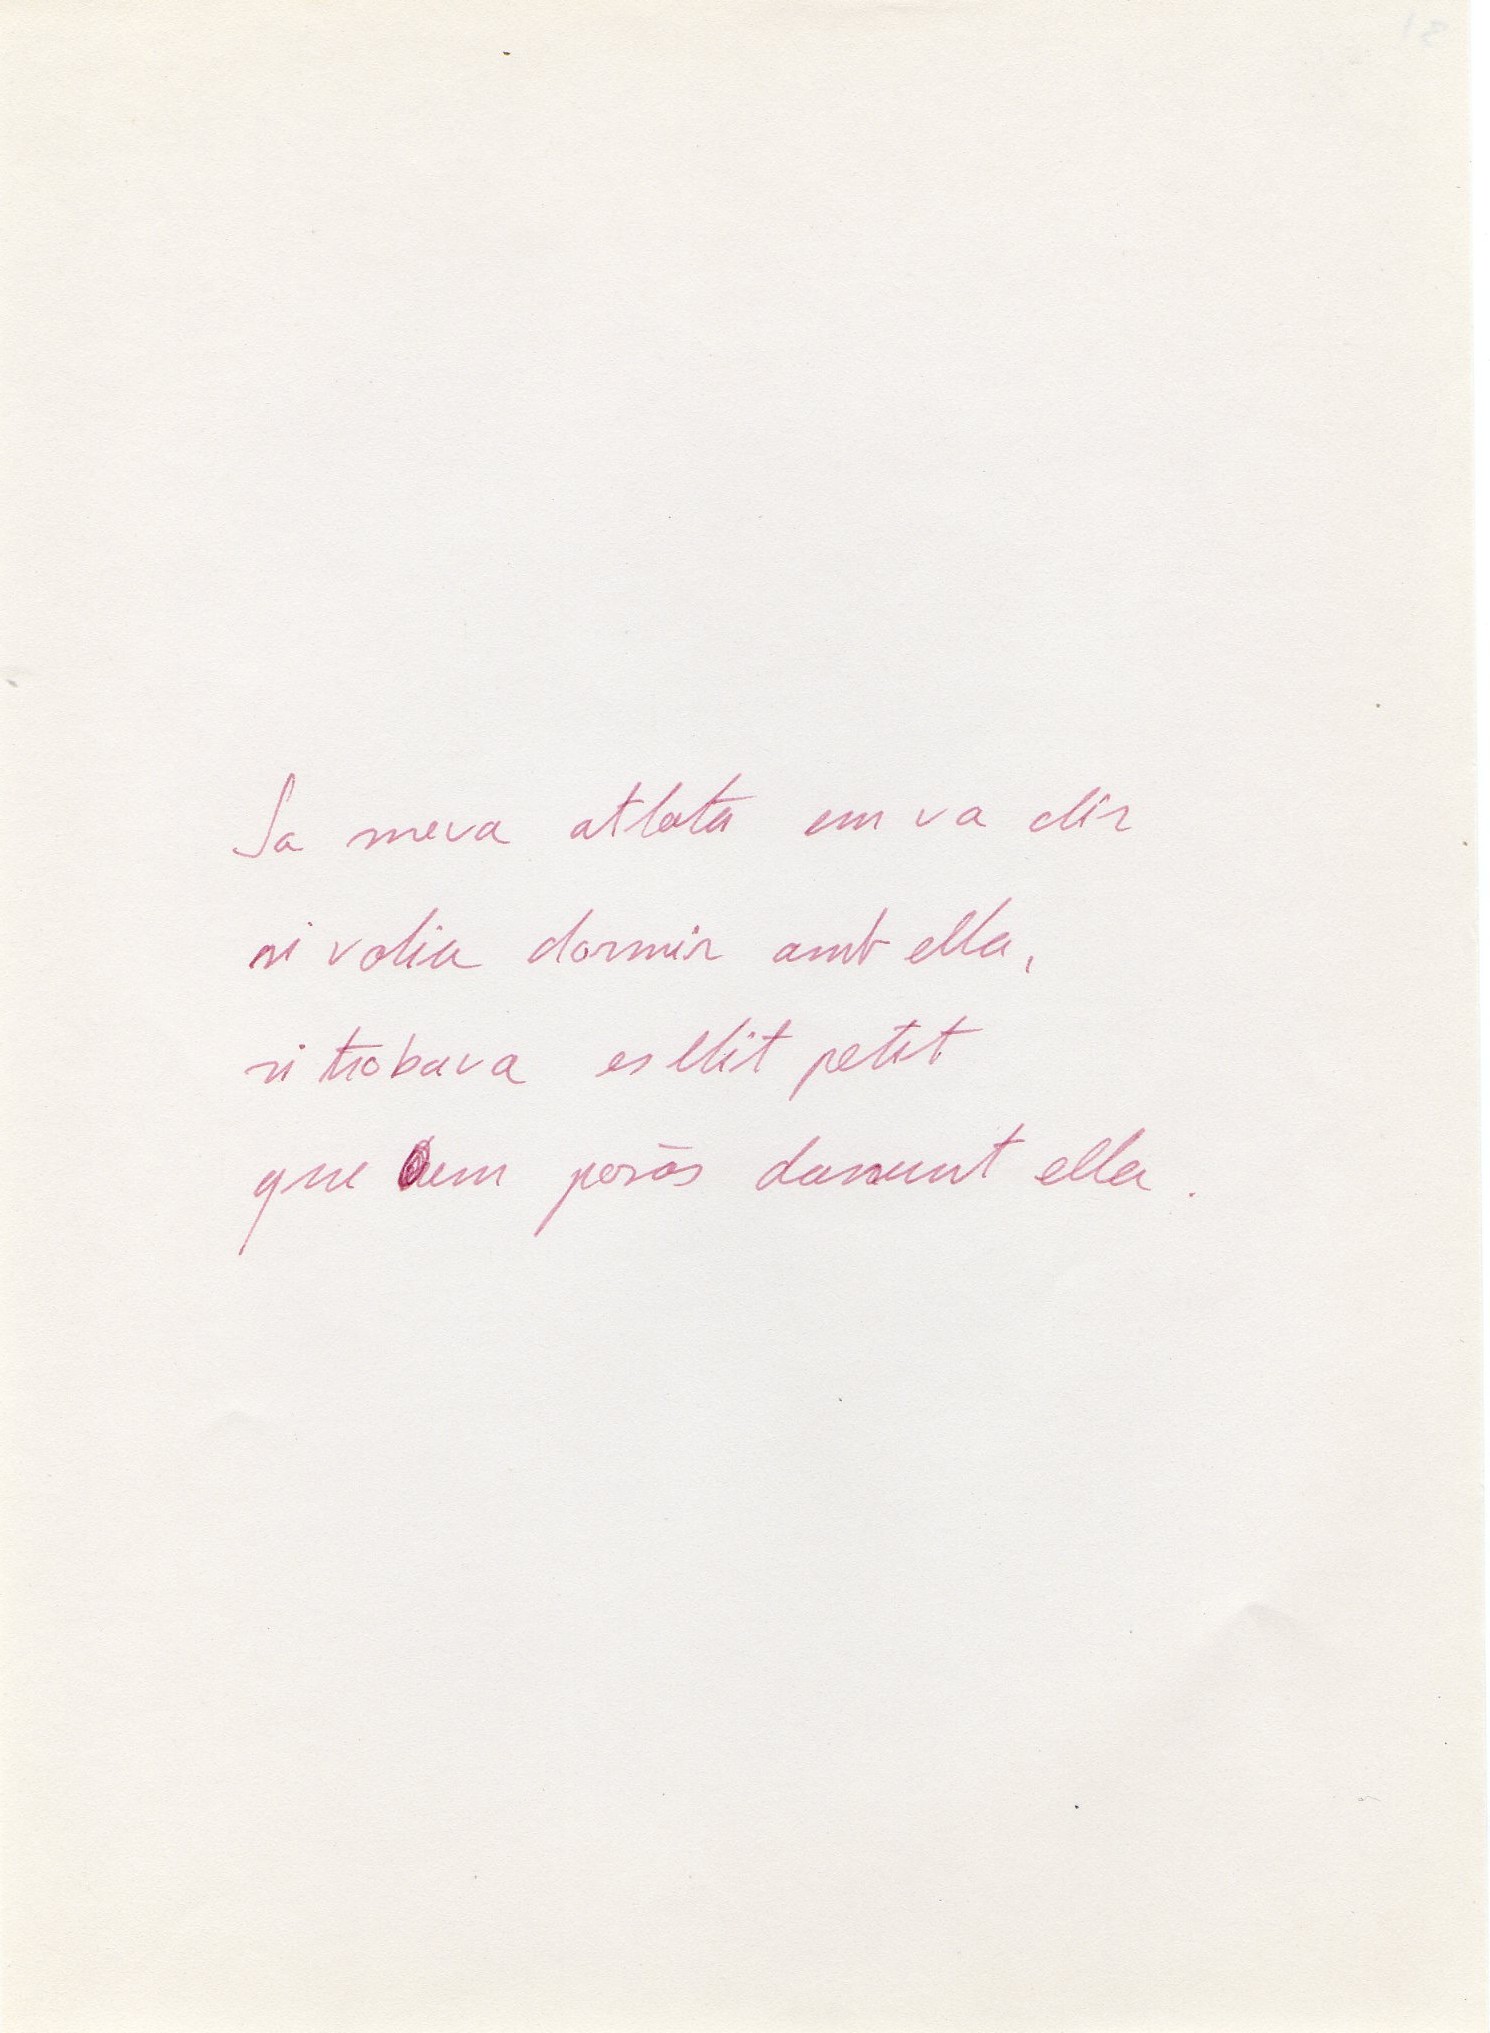 Sa meva atlota em va dir
si volia dormir amb ella,
si trobava es llit petit
que em posàs damunt ella.